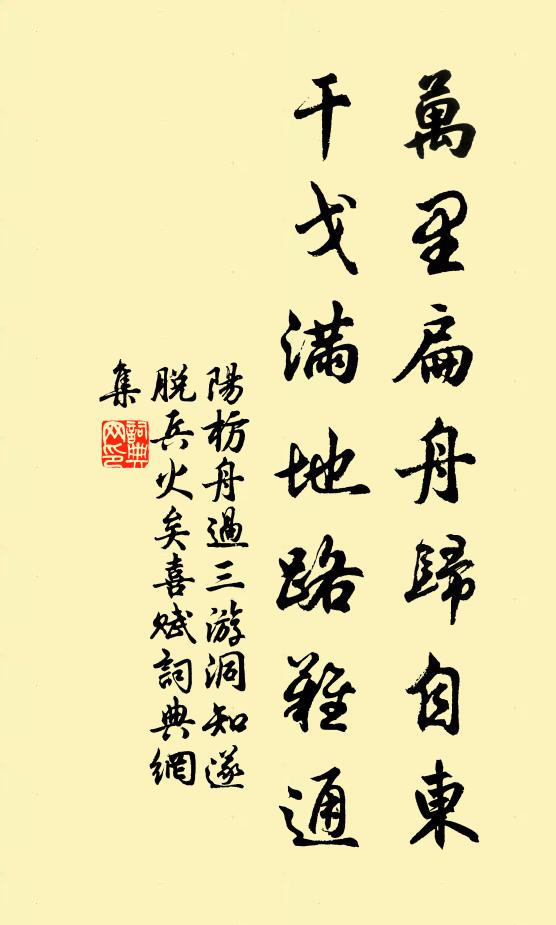 萬里扁舟歸自東
干戈滿地路難通
陽枋舟過三游洞知遂
脫兵火矣喜賦詞典網
集
詞典
网印